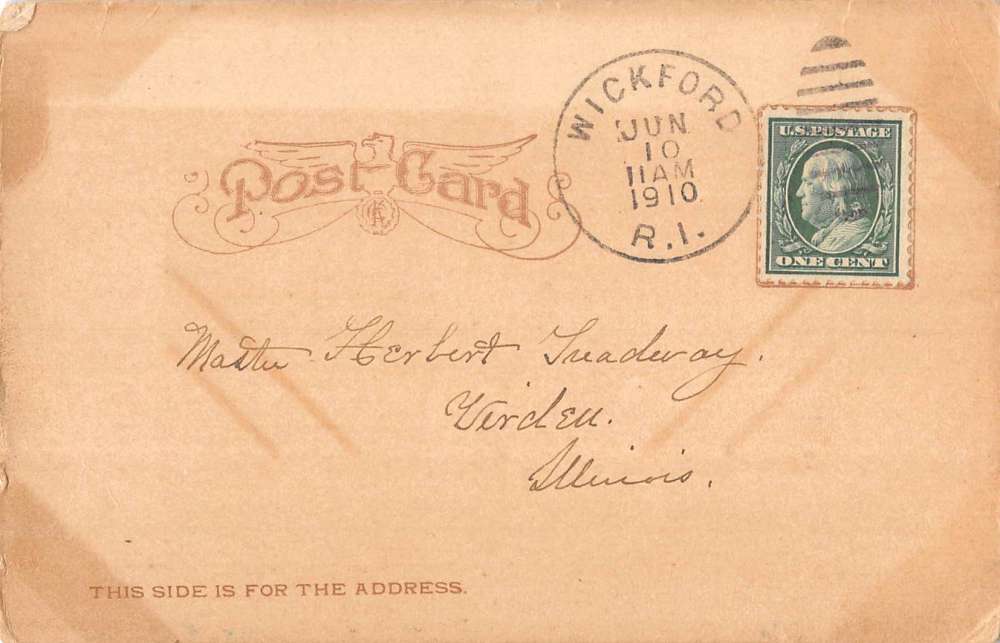 Post Card
WICKFORD
JUN
10
11 AM
1910
R.I.
U.S. POSTAGE
ONE CENT
Master Herbert Treadway.
Virden.
Illinois.
THIS SIDE IS FOR THE ADDRESS.